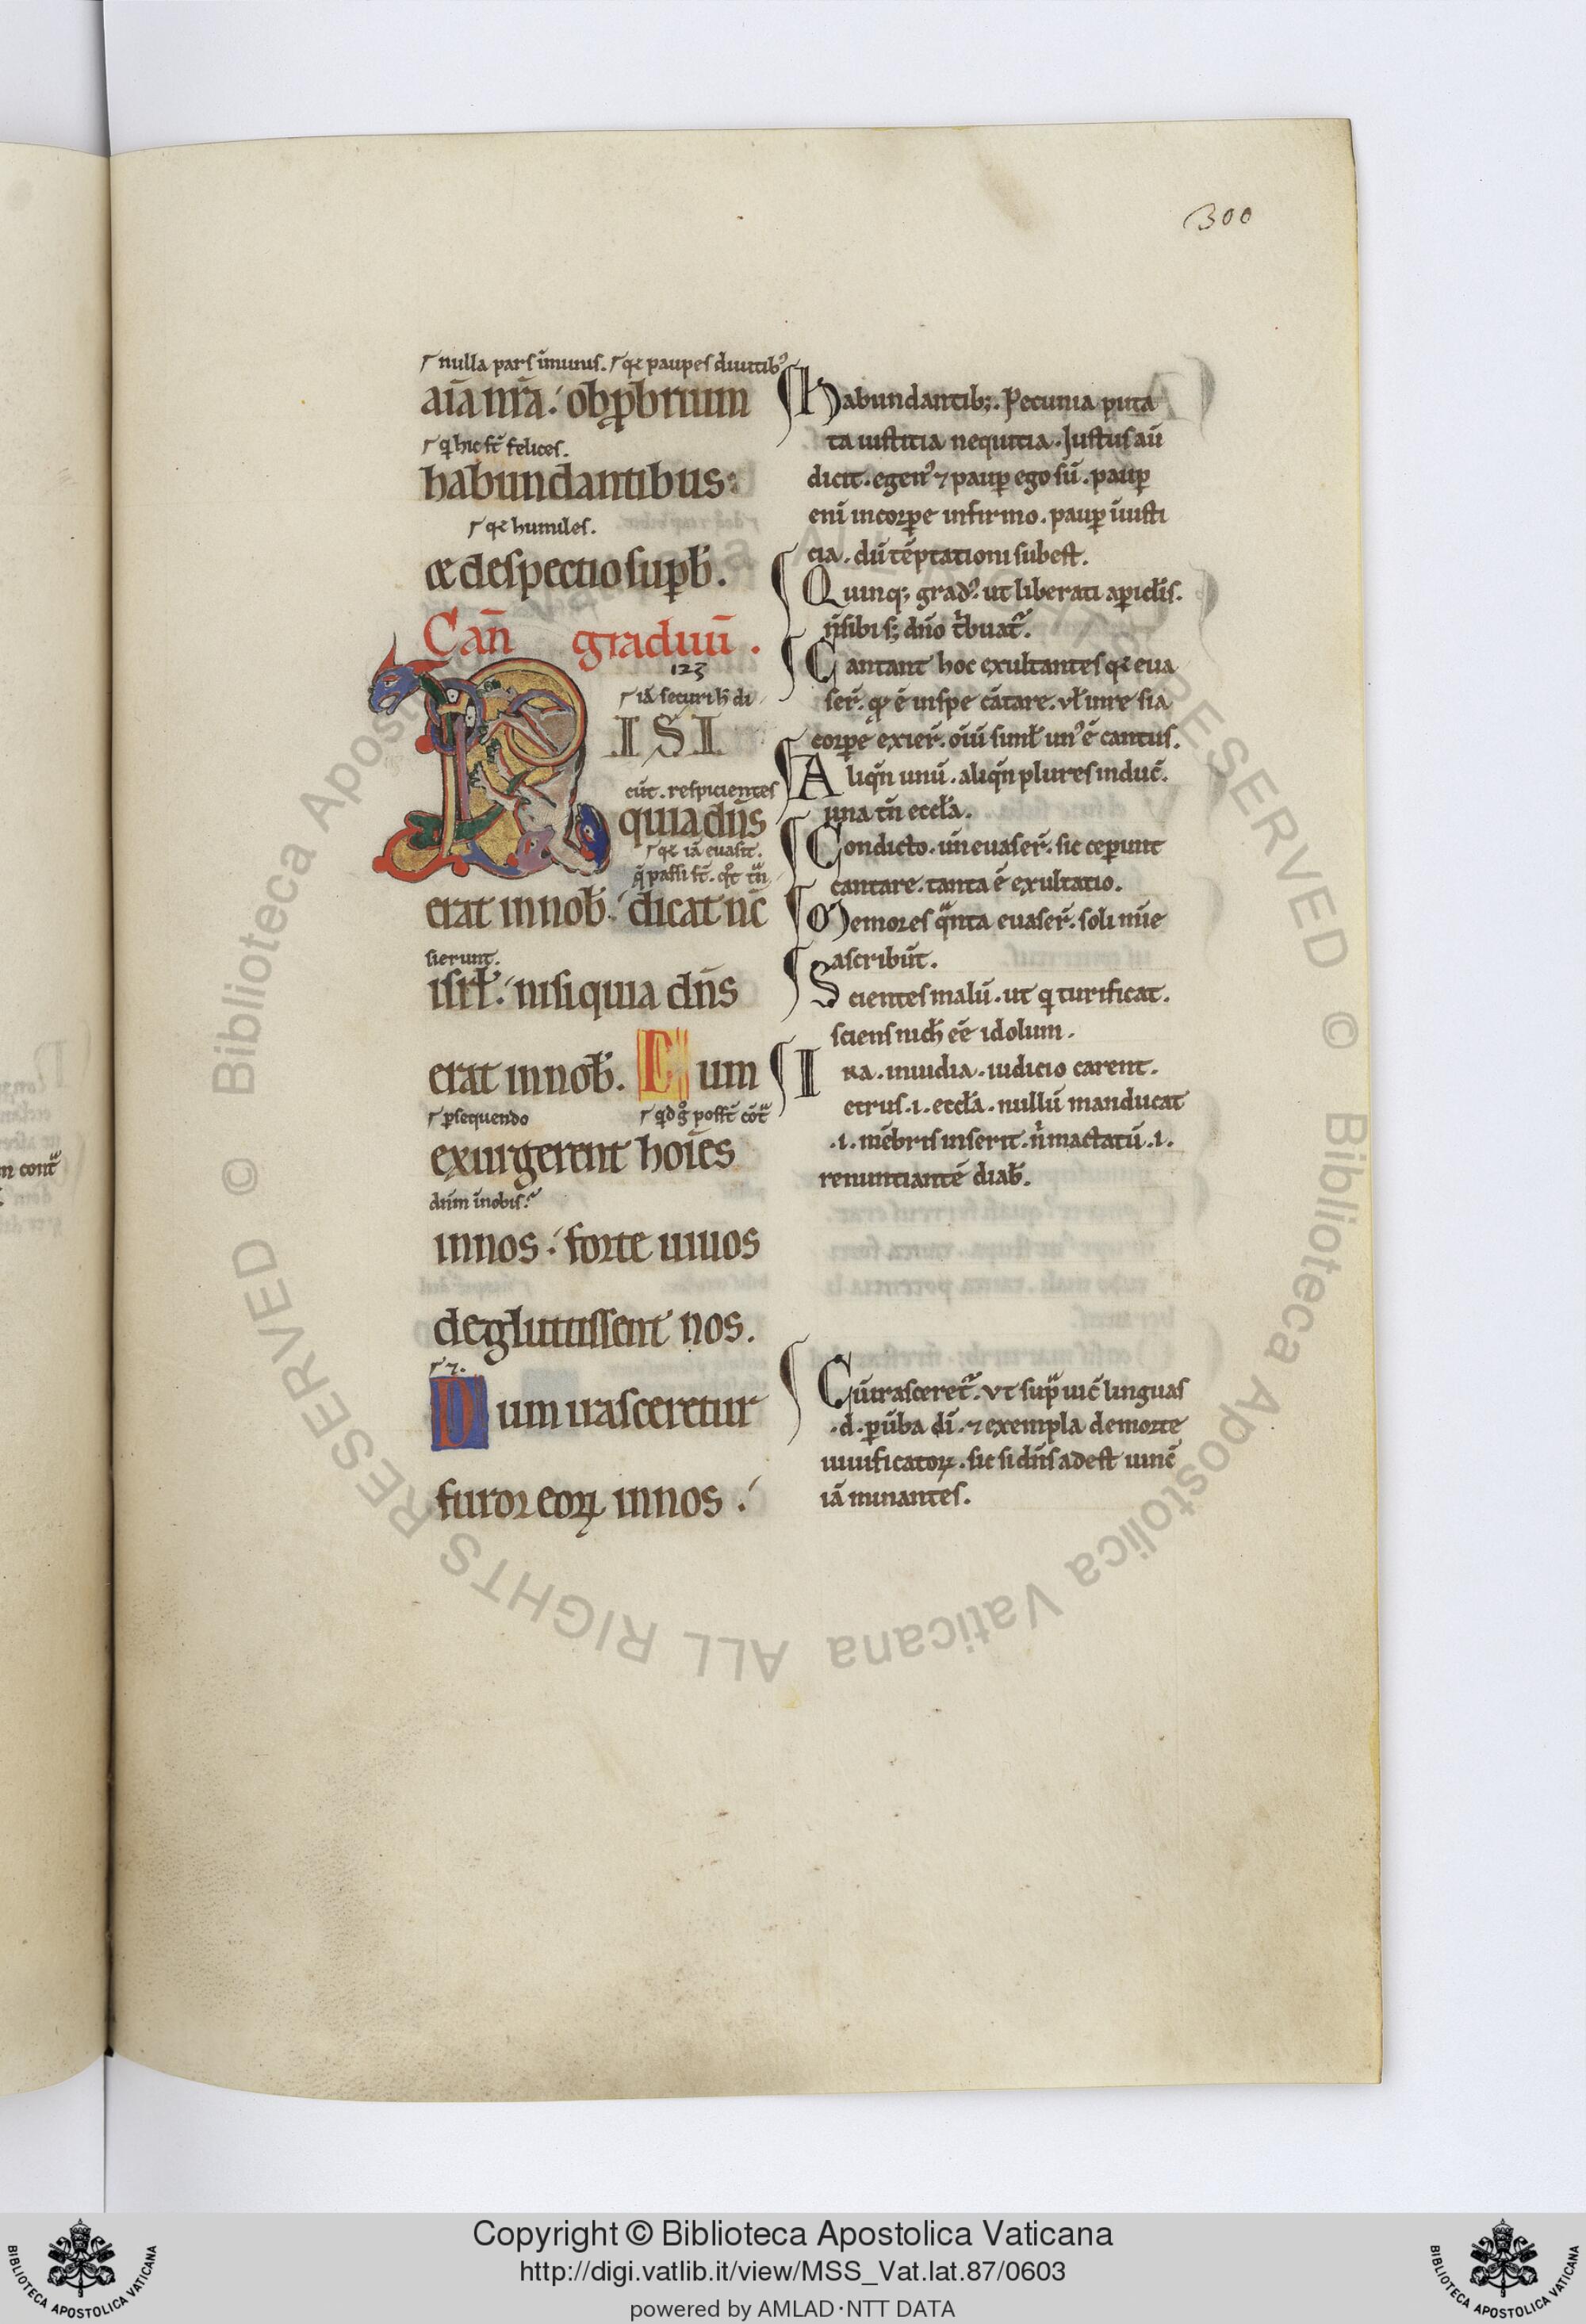 300
nulla pars īmunis. q̄ pauꝑes diuitibꝰ
aīa nr̄a. obꝓbrium
q̇ hic st̄ felices.
habundantibus:
q̄ humiles.
& despectio suꝑb̄.
Can̄ graduū.
123
iā securi h̄ di
NISI
cūt. respicientes
quia dn̄s
q̄ iā euasit.
erat in nob̄. dicat nc̄
sierunt.
isrl̄. nisi quia dn̄s
erat in nob̄. Cum
ꝑsequendo
exurgerent hoīes
in nos. forte uiuos
deglutissent nos.
⁊.
Dum irasceretur
furor eoꝝ in nos.
Habundantib;. Pecunia puta
ta iusticia nequitia. Iustus aū
dicit. egenꝰ ⁊ pauꝑ ego sū. pauꝑ
eni in corꝑe infirmo. pauꝑ ī iusti
cia. dū tēptationi subest.
Quinq; gradꝰ ut liberati a ꝑicl̄is.
n̄ sibi s; dn̄o tͥbuat᷑.
Cantant hoc exultantes q̄ eua
ser̄. q̄ ē in spe cātare. ul̄ in re sia
corꝑe exier̄. oīū simł unꝰ ē cantus.
Aliqn̄ unū. aliqn̄ plures induc̄.
una tn̄ eccl̄a.
Condicto. un̄ euaser̄. sic ceꝑunt
cantare. tanta ē exultatio.
Memores qͣnta euaser̄. soli nūe
ascribūt.
Scientes malū. ut q̇ turificat.
sciens nich̄ eē idolum.
Ira. inuidia. iudicio carent.
etrus .i. eccl̄a. nullū manducat
.i. mēbris inserit. n̄ mactatū .i.
renuntiantē diab̄.
Cū irasceret᷑. ut supͣ uic̄ linguas
.d. ꝑ ūba dī. ⁊ exempla de morte
uiuificatoꝝ. sic si dn̄s adest uinc̄
iā minantes.
Copyright © Biblioteca Apostolica Vaticana
http://digi.vatlib.it/view/MSS_Vat.lat.87/0603
powered by AMLAD·NTT DATA
BIBLIOTECA APOSTOLICA VATICANA
BIBLIOTECA APOSTOLICA VATICANA
© Biblioteca Apostolica Vaticana ALL RIGHTS RESERVED
© Biblioteca Apostolica Vaticana ALL RIGHTS RESERVED